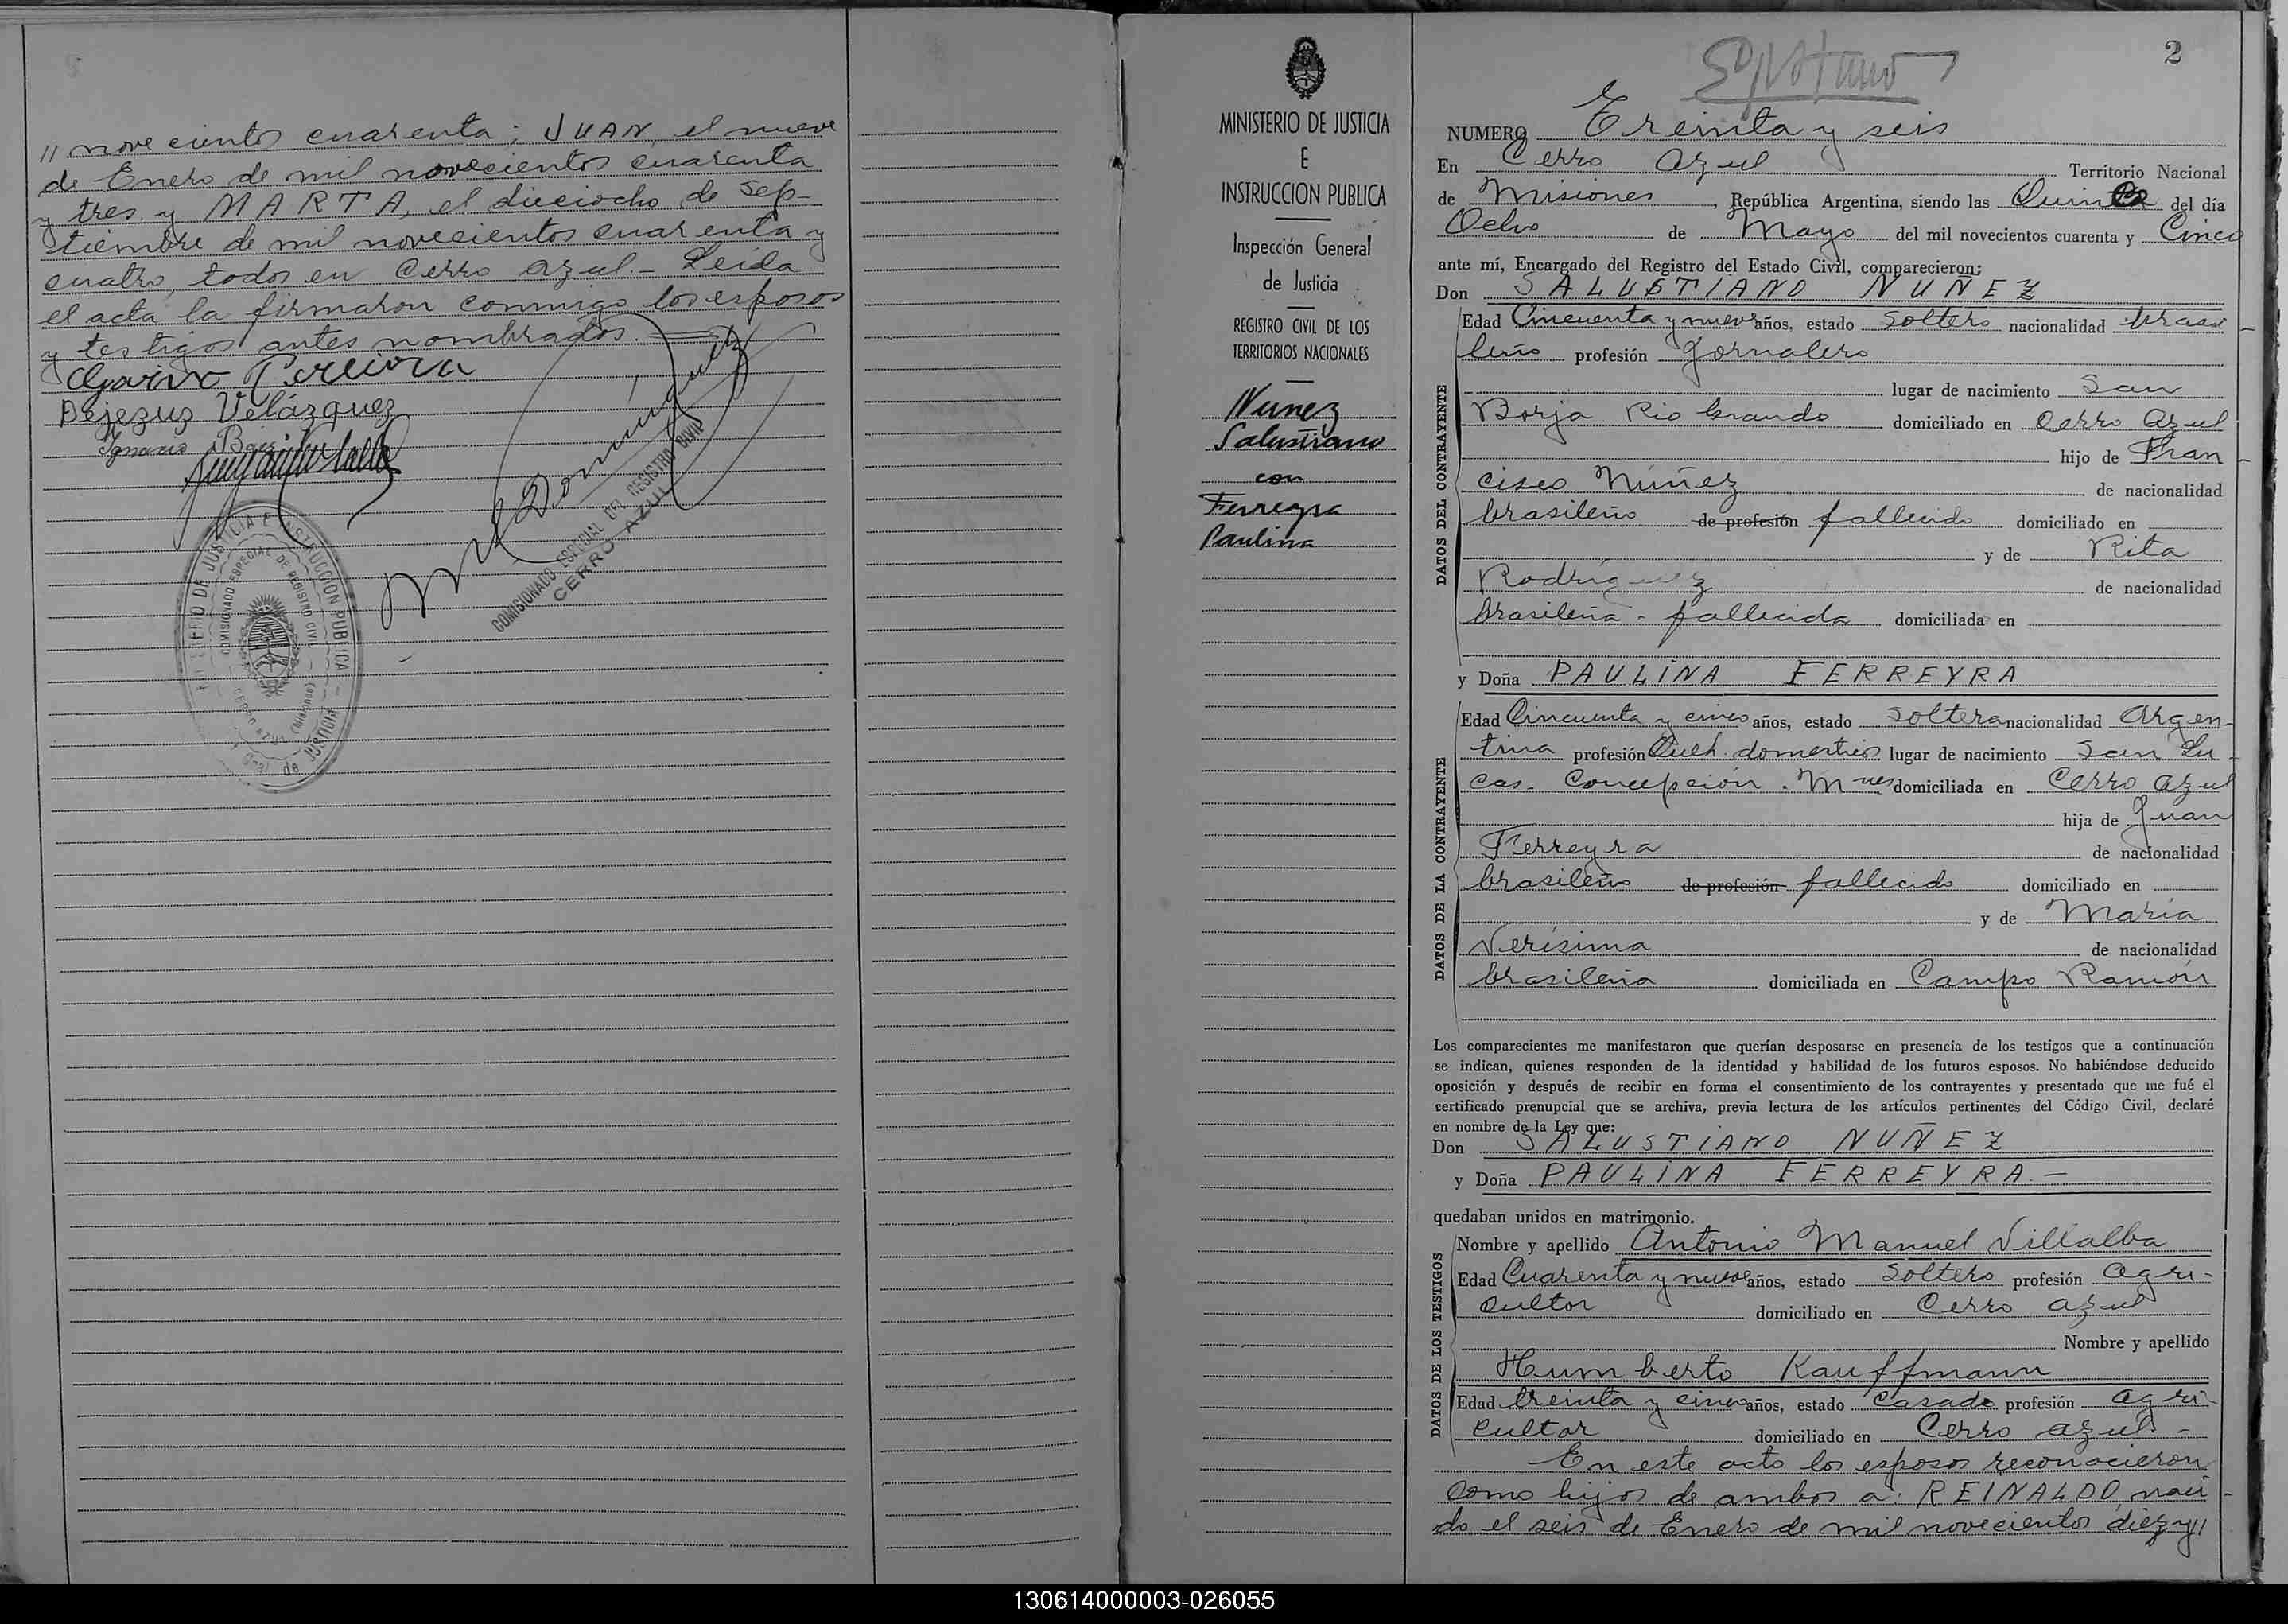 // novecientos cuarenta; JUAN, el nueve
de Enero de mil novecientos cuarenta
y tres y MARTA, el dieciocho de Sep-
tiembre de mil novecientos cuarenta y
cuatro, todos en Cerro Azul.- Leída
el acta la firmaron conmigo los esposos
y testigos antes nombrados.
Pereira
Dejezuz Velázquez
Ignacio
Domínguez
COMISIONADO ESPECIAL DEL REGISTRO CIVIL
CERRO AZUL
MINISTERIO DE JUSTICIA E INSTRUCCION PUBLICA
COMISIONADO ESPECIAL DE REGISTRO CIVIL
CERRO AZUL (Misiones)
Gral. de Justicia
MINISTERIO DE JUSTICIA
E
INSTRUCCION PUBLICA
Inspección General
de Justicia
REGISTRO CIVIL DE LOS
TERRITORIOS NACIONALES
Nuñez
Salustiano
con
Ferreyra
Paulina
2
NUMERO Treinta y seis
En Cerro Azul Territorio Nacional
de Misiones, República Argentina, siendo las Quince del día
Ocho de Mayo del mil novecientos cuarenta y Cinco
ante mí, Encargado del Registro del Estado Civil, comparecieron:
Don SALUSTIANO NUÑEZ
DATOS DEL CONTRAYENTE
Edad Cincuenta y nueve años, estado Soltero nacionalidad brasi-
leño profesión Jornalero
lugar de nacimiento San
Borja Rio Grande domiciliado en Cerro Azul
hijo de Fran-
cisco Núñez de nacionalidad
brasileño de profesión fallecido domiciliado en
y de Rita
Rodríguez de nacionalidad
brasileña - fallecida domiciliada en
y Doña PAULINA FERREYRA
DATOS DE LA CONTRAYENTE
Edad Cincuenta y cinco años, estado Soltera nacionalidad Argen-
tina profesión Queh. domesticos lugar de nacimiento San Lu-
cas. Concepción. Mnes domiciliada en Cerro Azul
hija de Juan
Ferreyra de nacionalidad
brasileño de profesión fallecido domiciliado en
y de María
Verísima de nacionalidad
brasileña domiciliada en Campo Ramón
Los comparecientes me manifestaron que querían desposarse en presencia de los testigos que a continuación
se indican, quienes responden de la identidad y habilidad de los futuros esposos. No habiéndose deducido
oposición y después de recibir en forma el consentimiento de los contrayentes y presentado que me fué el
certificado prenupcial que se archiva, previa lectura de los artículos pertinentes del Código Civil, declaré
en nombre de la Ley que:
Don SALUSTIANO NUÑEZ
y Doña PAULINA FERREYRA.-
quedaban unidos en matrimonio.
DATOS DE LOS TESTIGOS
Nombre y apellido Antonio Manuel Villalba
Edad Cuarenta y nueve años, estado Soltero profesión Agri-
cultor domiciliado en Cerro Azul
Nombre y apellido
Humberto Kauffmann
Edad treinta y cinco años, estado Casado profesión Agri-
cultor domiciliado en Cerro Azul -
En este acto los esposos reconocieron
como hijos de ambos a: REINALDO, naci-
do el seis de Enero de mil novecientos diez y//
130614000003-026055